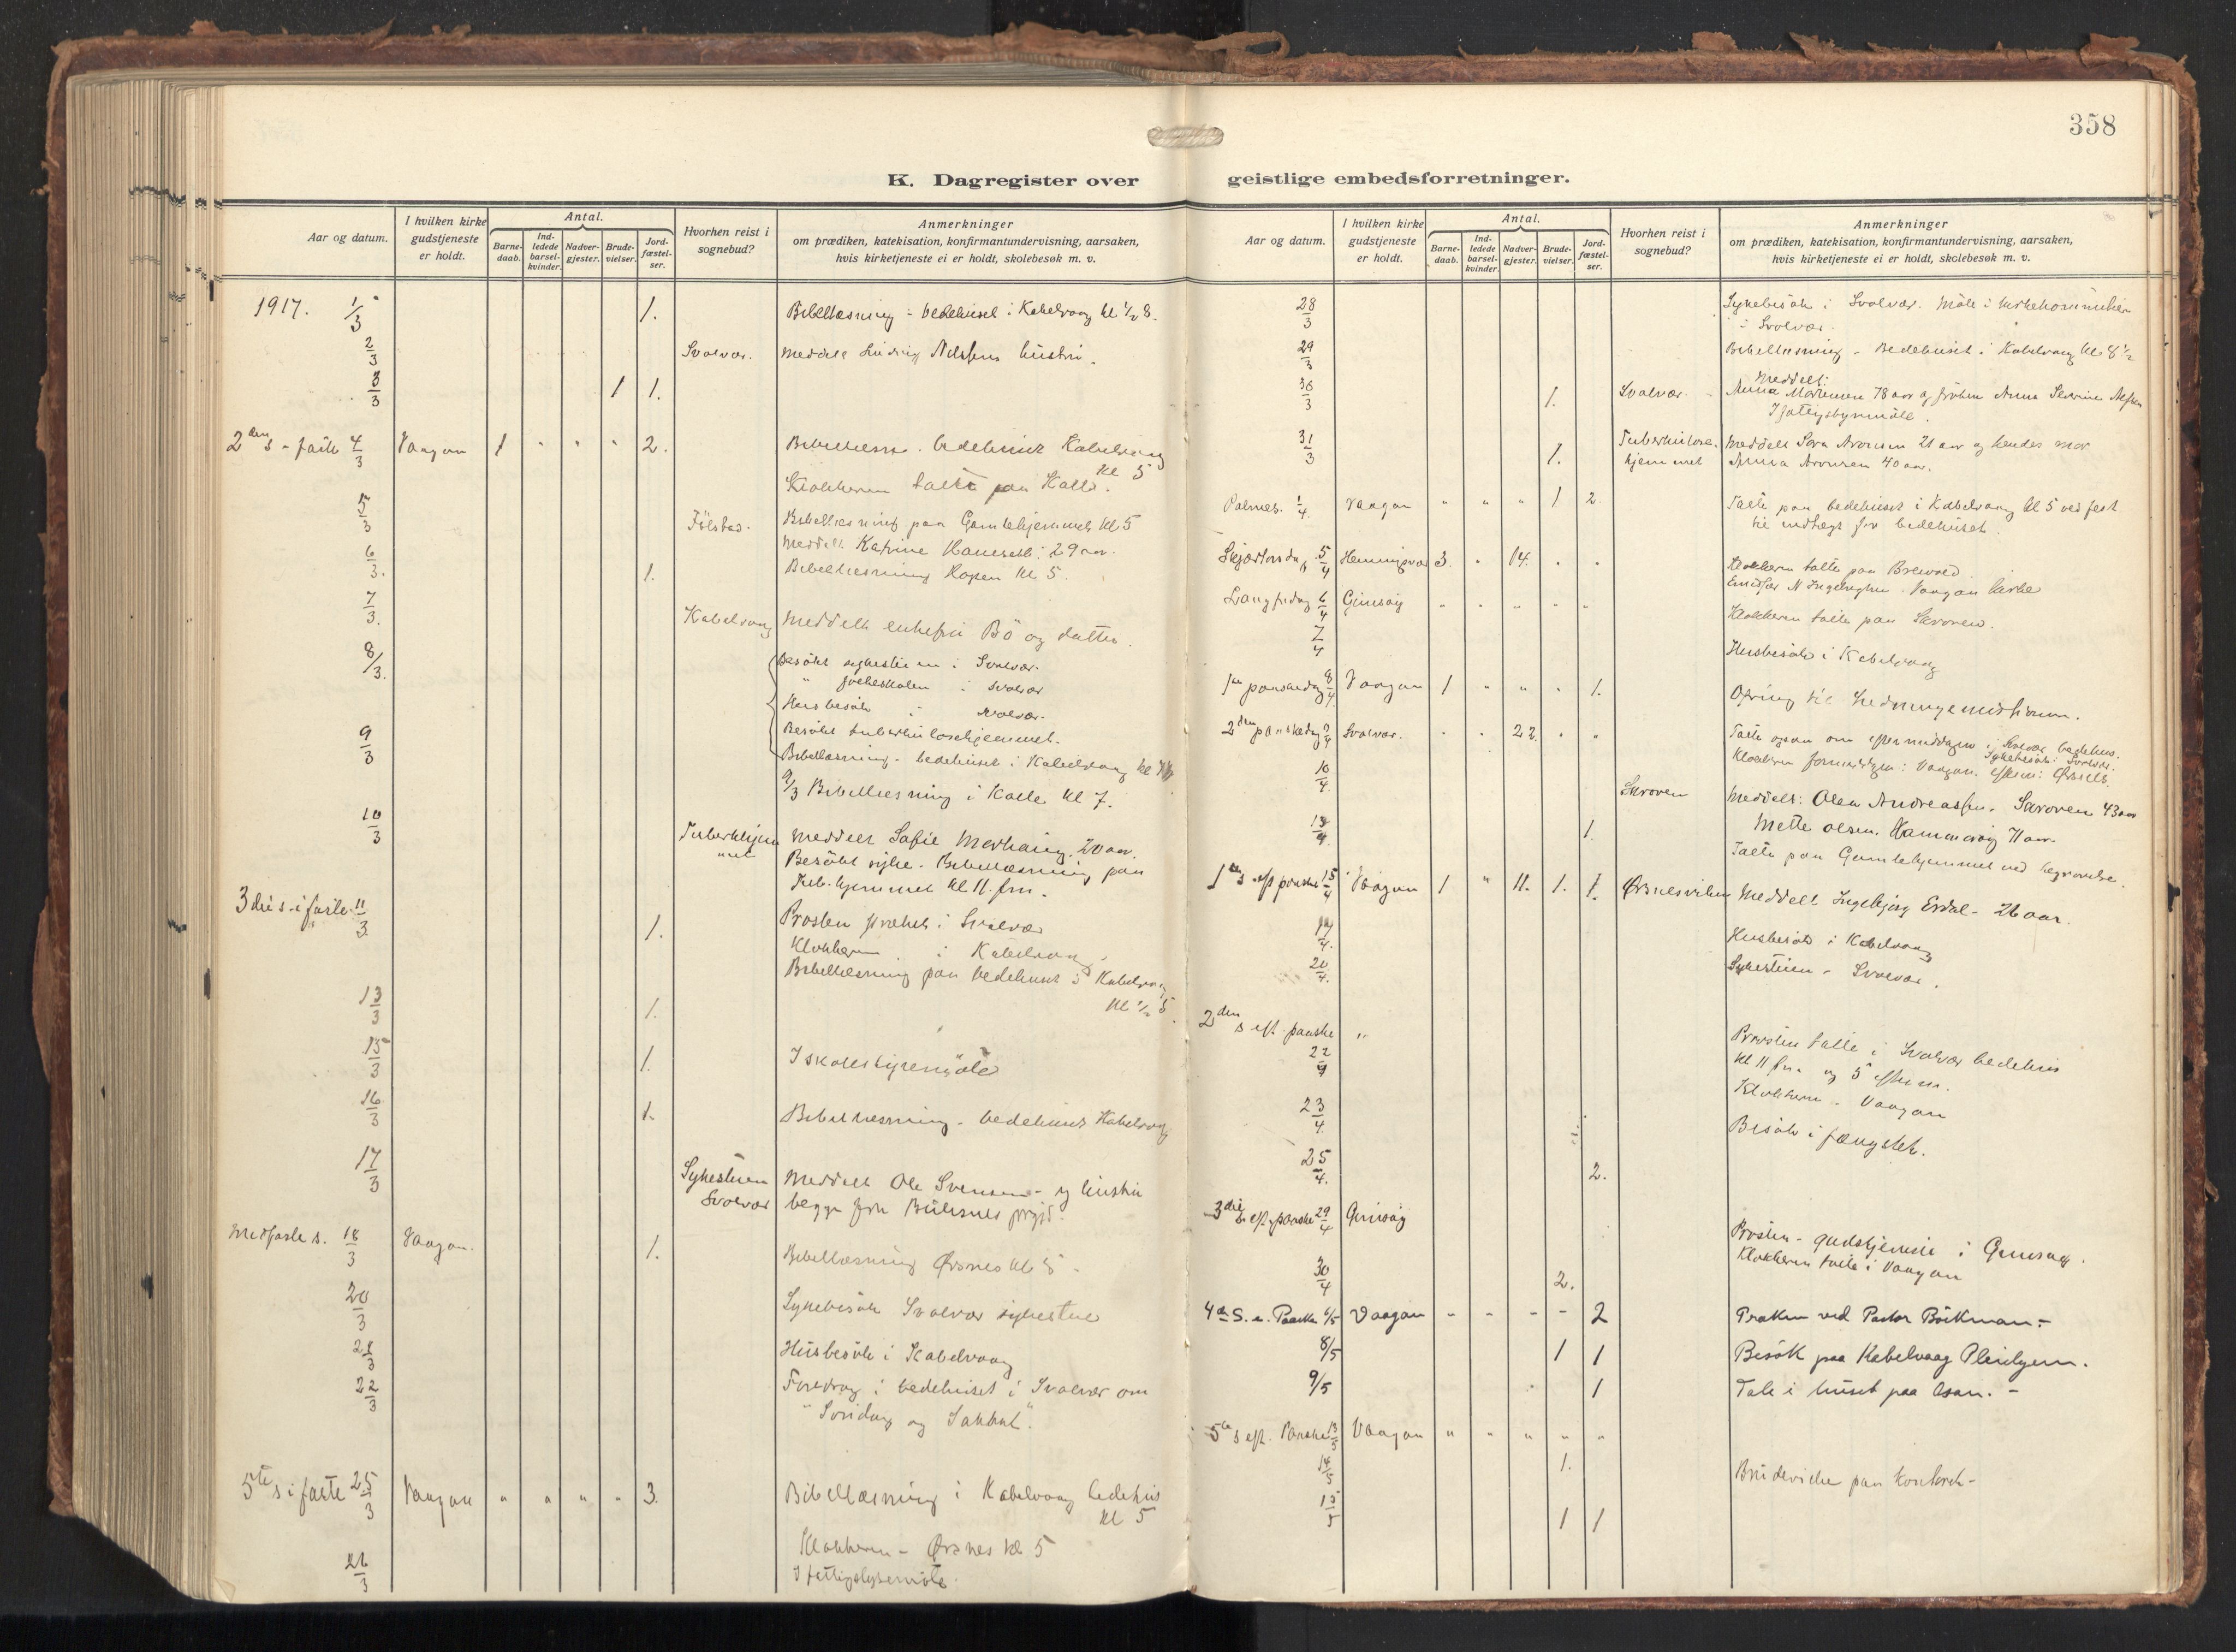 358
K. Dagregister over geistlige embedsforretninger.
Aar og datum.
I hvilken kirke gudstjeneste er holdt.
Antal.
Barne-daab.
Ind-ledede barsel-kvinder.
Nadver-gjester.
Brude-vielser.
Jord-fæstel-ser.
Hvorhen reist i sognebud?
Anmerkninger
om prædiken, katekisation, konfirmantundervisning, aarsaken,
hvis kirketjeneste ei er holdt, skolebesøk m. v.
1917. 1/3 1. Bibellæsning i bedehuset i Kabelvaag kl 1/2 8.
2/3 Svolvær. Meddelt Ludvig Nilsens hustru.
3/3 1 1.
2den s. i faste 4/3 Vaagan 1 " " " 2. Bibellæsn. bedehuset Kabelvaag
kl 5
Klokkeren talte paa Kalle.
5/3 Bibellæsning paa Gamlehjemmet kl 5
Meddelt Katrine 29 aar.
6/3. 1. Bibellæsning Hopen kl 5.
7/3. Kabelvaag Meddelt enkefru Bö og datter.
8/3. Besökt sykestuen i Svolvær.
" folkeskolen i Svolvær
Husbesök i Svolvær.
Besökt tuberkulosehjemmet.
9/3 Bibellæsning i bedehuset i Kabelvaag kl
9/3 Bibellæsning i Kalle kl 7.
10/3 Meddelt Sofie 20 aar.
Besökt syke. Bibellæsning paa
Tub. hjemmet kl 11. fm.
3die s. i faste 11/3 1. Prosten præket i Svolvær
Klokkeren i Kabelvaag
Bibellæsning paa bedehuset i Kabelvaag
kl 1/2 5.
13/3 1.
15/3 1. I skolestyremöte
16/3 1. Bibellæsning i bedehuset Kabelvaag
17/3 Sykestuen Svolvær Meddelt Ole Svensen og hustru
begge fra
Midfaste s. 18/3 Vaagan. 1. Bibellæsning Ørsnes kl 5.
20/3 Sykebesök Svolvær sykestue
21/3 Husbesök i Kabelvaag
22/3 Foredrag i bedehuset i Svolvær om
"Söndag og Sabbat".
5te s i faste 25/3 Vaagan " " " " 3. Bibellæsning i Kabelvaag bedehus
kl 5
Klokkeren - Ørsnes kl 5
26/3 I fattigstyremöte.
Aar og datum.
I hvilken kirke gudstjeneste er holdt.
Antal.
Barne-daab.
Ind-ledede barsel-kvinder.
Nadver-gjester.
Brude-vielser.
Jord-fæstel-ser.
Hvorhen reist i sognebud?
Anmerkninger
om prædiken, katekisation, konfirmantundervisning, aarsaken,
hvis kirketjeneste ei er holdt, skolebesøk m. v.
28/3 Sykebesök i Svolvær. Möte i
i Svolvær.
29/3 Bibellæsning i Bedehuset i Kabelvaag kl 8 1/2
30/3 1. Svolvær. Meddelt:
Anna Mortensen 78 aar og fröken Anna
I fattigstyremöte.
31/3 1. Tuberkulose- Meddelt Sara Aronsen 21 aar og hendes mor
hjemmet Anna Aronsen 40 aar.
Palmes. 1/4 Vaagan " " " 1 2 Talte paa bedehuset i Kabelvaag kl 5 ved fest
til indtægt for bedehuset.
Skjærtorsdag 5/4 Henningsvær 3. " 14. " " Klokkeren talte paa
N Vaagan kirke
Langfredag 6/4 Gimsöy " " " " " Klokkeren talte paa Skroven.
7/4 Husbesök i Kabelvaag
1ste paaskedag 8/4 Vaagan 1 " " " 1. Ofring til hedningemissionen.
2den paaskedag 9/4 Svolvær. " " 22. " " Talte ogsaa om eftermiddagen i Svolvær bedehus.
Sykebesök i Svolvær.
Klokkeren formiddagen i Vaagan. efterm: Ørsnes.
10/4 Skroven Meddelt: Olea Andreassen. Skroven 43 aar
Mette Olsen. 71 aar.
13/4. 1. Talte paa Gamlehjemmet ved begravelse.
1ste s. eft paaske 15/4 Vaagan 1 " 11. 1. 1. Ørsnesviken Meddelt Ingebjörg Erdal - 26 aar.
Husbesök i Kabelvaag
20/4. Sykestuen - Svolvær.
2den s. eft. paaske "
22/4 Prosten talte i Svolvær bedehus
kl 11 fm. og 5 efterm.
Klokkeren - Vaagan
23/4. Besök i fængslet.
25/4. 2.
3die s. eft. paaske 29/4 Gimsöy Prosten - gudstjeneste i Gimsöy.
Klokkeren talte i Vaagan
30/4 2.
4de S. e. Paaske 6/5 Vaagan - - - - 2 Præken ved Pastor Böckman.-
8/5 1 1 Besök paa Kabelvaag Pleiehjem.
9/5 1 Tale i huset paa Osan. -
5te s eft. Paaske 13/5 Vaagan " " " " "
14/5 1. Brudevielse paa kontoret-
15/5 1 1